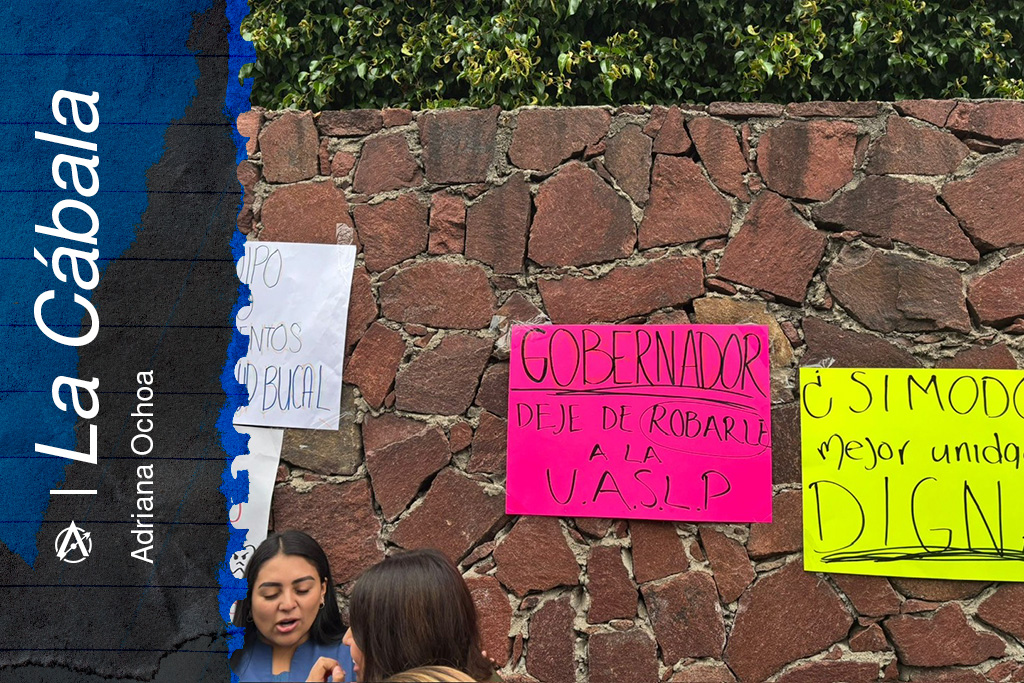 La Cábala
Adriana Ochoa
BUCAL
GOBERNADOR
DEJE DE ROBARLE
A LA
U.A.S.L.P
¿SI MODO
mejor
DIGN